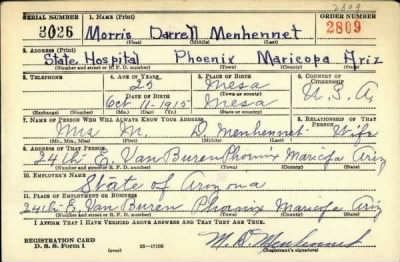 2809
SERIAL NUMBER 1. NAME (Print) ORDER NUMBER
3026 Morris Darrell Menhennet 2809
(First) (Middle) (Last)
2. ADDRESS (Print)
State Hospital Phoenix Maricopa Ariz
(Number and street or R. F. D. number) (Town) (County) (State)
3. TELEPHONE 4. AGE IN YEARS 5. PLACE OF BIRTH 6. COUNTRY OF CITIZENSHIP
25 Mesa
DATE OF BIRTH (Town or county)
Oct 11-1915 Mesa U.S.A.
(Exchange) (Number) (Mo.) (Day) (Yr.) (State or country)
7. NAME OF PERSON WHO WILL ALWAYS KNOW YOUR ADDRESS 8. RELATIONSHIP OF THAT PERSON
Mrs M. D. Menhennet Wife
(Mr., Mrs., Miss) (First) (Middle) (Last)
9. ADDRESS OF THAT PERSON
24th E. Van Buren Phoenix Maricopa Ariz
(Number and street or R. F. D. number) (Town) (County) (State)
10. EMPLOYER'S NAME
State of Arizona
11. PLACE OF EMPLOYMENT OR BUSINESS
24th E. Van Buren Phoenix Maricopa Ariz
(Number and street or R. F. D. number) (Town) (County) (State)
I AFFIRM THAT I HAVE VERIFIED ABOVE ANSWERS AND THAT THEY ARE TRUE.
REGISTRATION CARD
D. S. S. Form 1
M. D. Menhennet
(Registrant's signature)